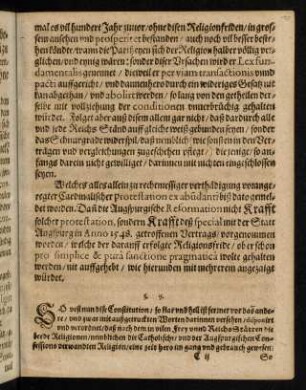 mal es vil hundert Jahr zuvor / ohne disen Religionfriden / in gros-
sem ansehen vnd prosperitet bestanden / auch noch vil besser beste-
hen köndte / wann die Partheyen sich der Religion halber völlig ver-
glichen / vnd eynig wären: sonder diser Vrsachen wird er Lex fun-
damentalis genennet / dieweil er per viam transactionis vnnd
pacti auffgericht / vnd dannenhero durch ein wideriges Gesatz nit
kan abgethan / vnd aboliert werden / so lang von den getheilten der-
selbe mit vollziehung der conditionen vnuerbrüchig gehalten
würdet. Folget aber auß disem allem gar nicht / daß dardurch alle
vnd jede Reichs Ständ auff gleiche weiß gebunden seyen / sonder
das Schnurgrade widerspil / daß nemblich / wie sonsten in den Ver-
trägen vnd vergleichungen zugeschehen pflegt / die jenige / so an-
fangs darein nicht gewilliget / darinnen mit nichten eingeschlossen
seyen.
Welches alles allein zu rechtmessiger verthädigung vorange-
regter Cardinalischer protestation ex abundanti biß dato gemel-
det worden. Daß die Augspurgische Reformation nicht Krafft
solcher protestation, sondern Krafft deß special mit der Statt
Augspurg in Anno 1548. getroffenen Vertrags / vorgenommen
worden / welche der darauff erfolgte Religionsfride / ob er schon
pro simplice & pura sanctione pragmatica wolte gehalten
werden / nit auffgehebt / wie hierunden mit mehrerm angezeigt
würdet.
§. 9.
SO vest nun dise Constitution / so klar vnd hell ist ferrner vor das ande-
re / vnd zwar mit außgetruckten Worten darinnen versehen / disponirt
vnd verordnet / daß nach dem in vilen Frey vnnd Reichs Stätten die
beede Religionen / nemblichen die Catholische / vnd der Augspurgischen Con-
fessions verwandten Religion / eine zeit hero im gang vnd gebrauch gewesen:
C ij So